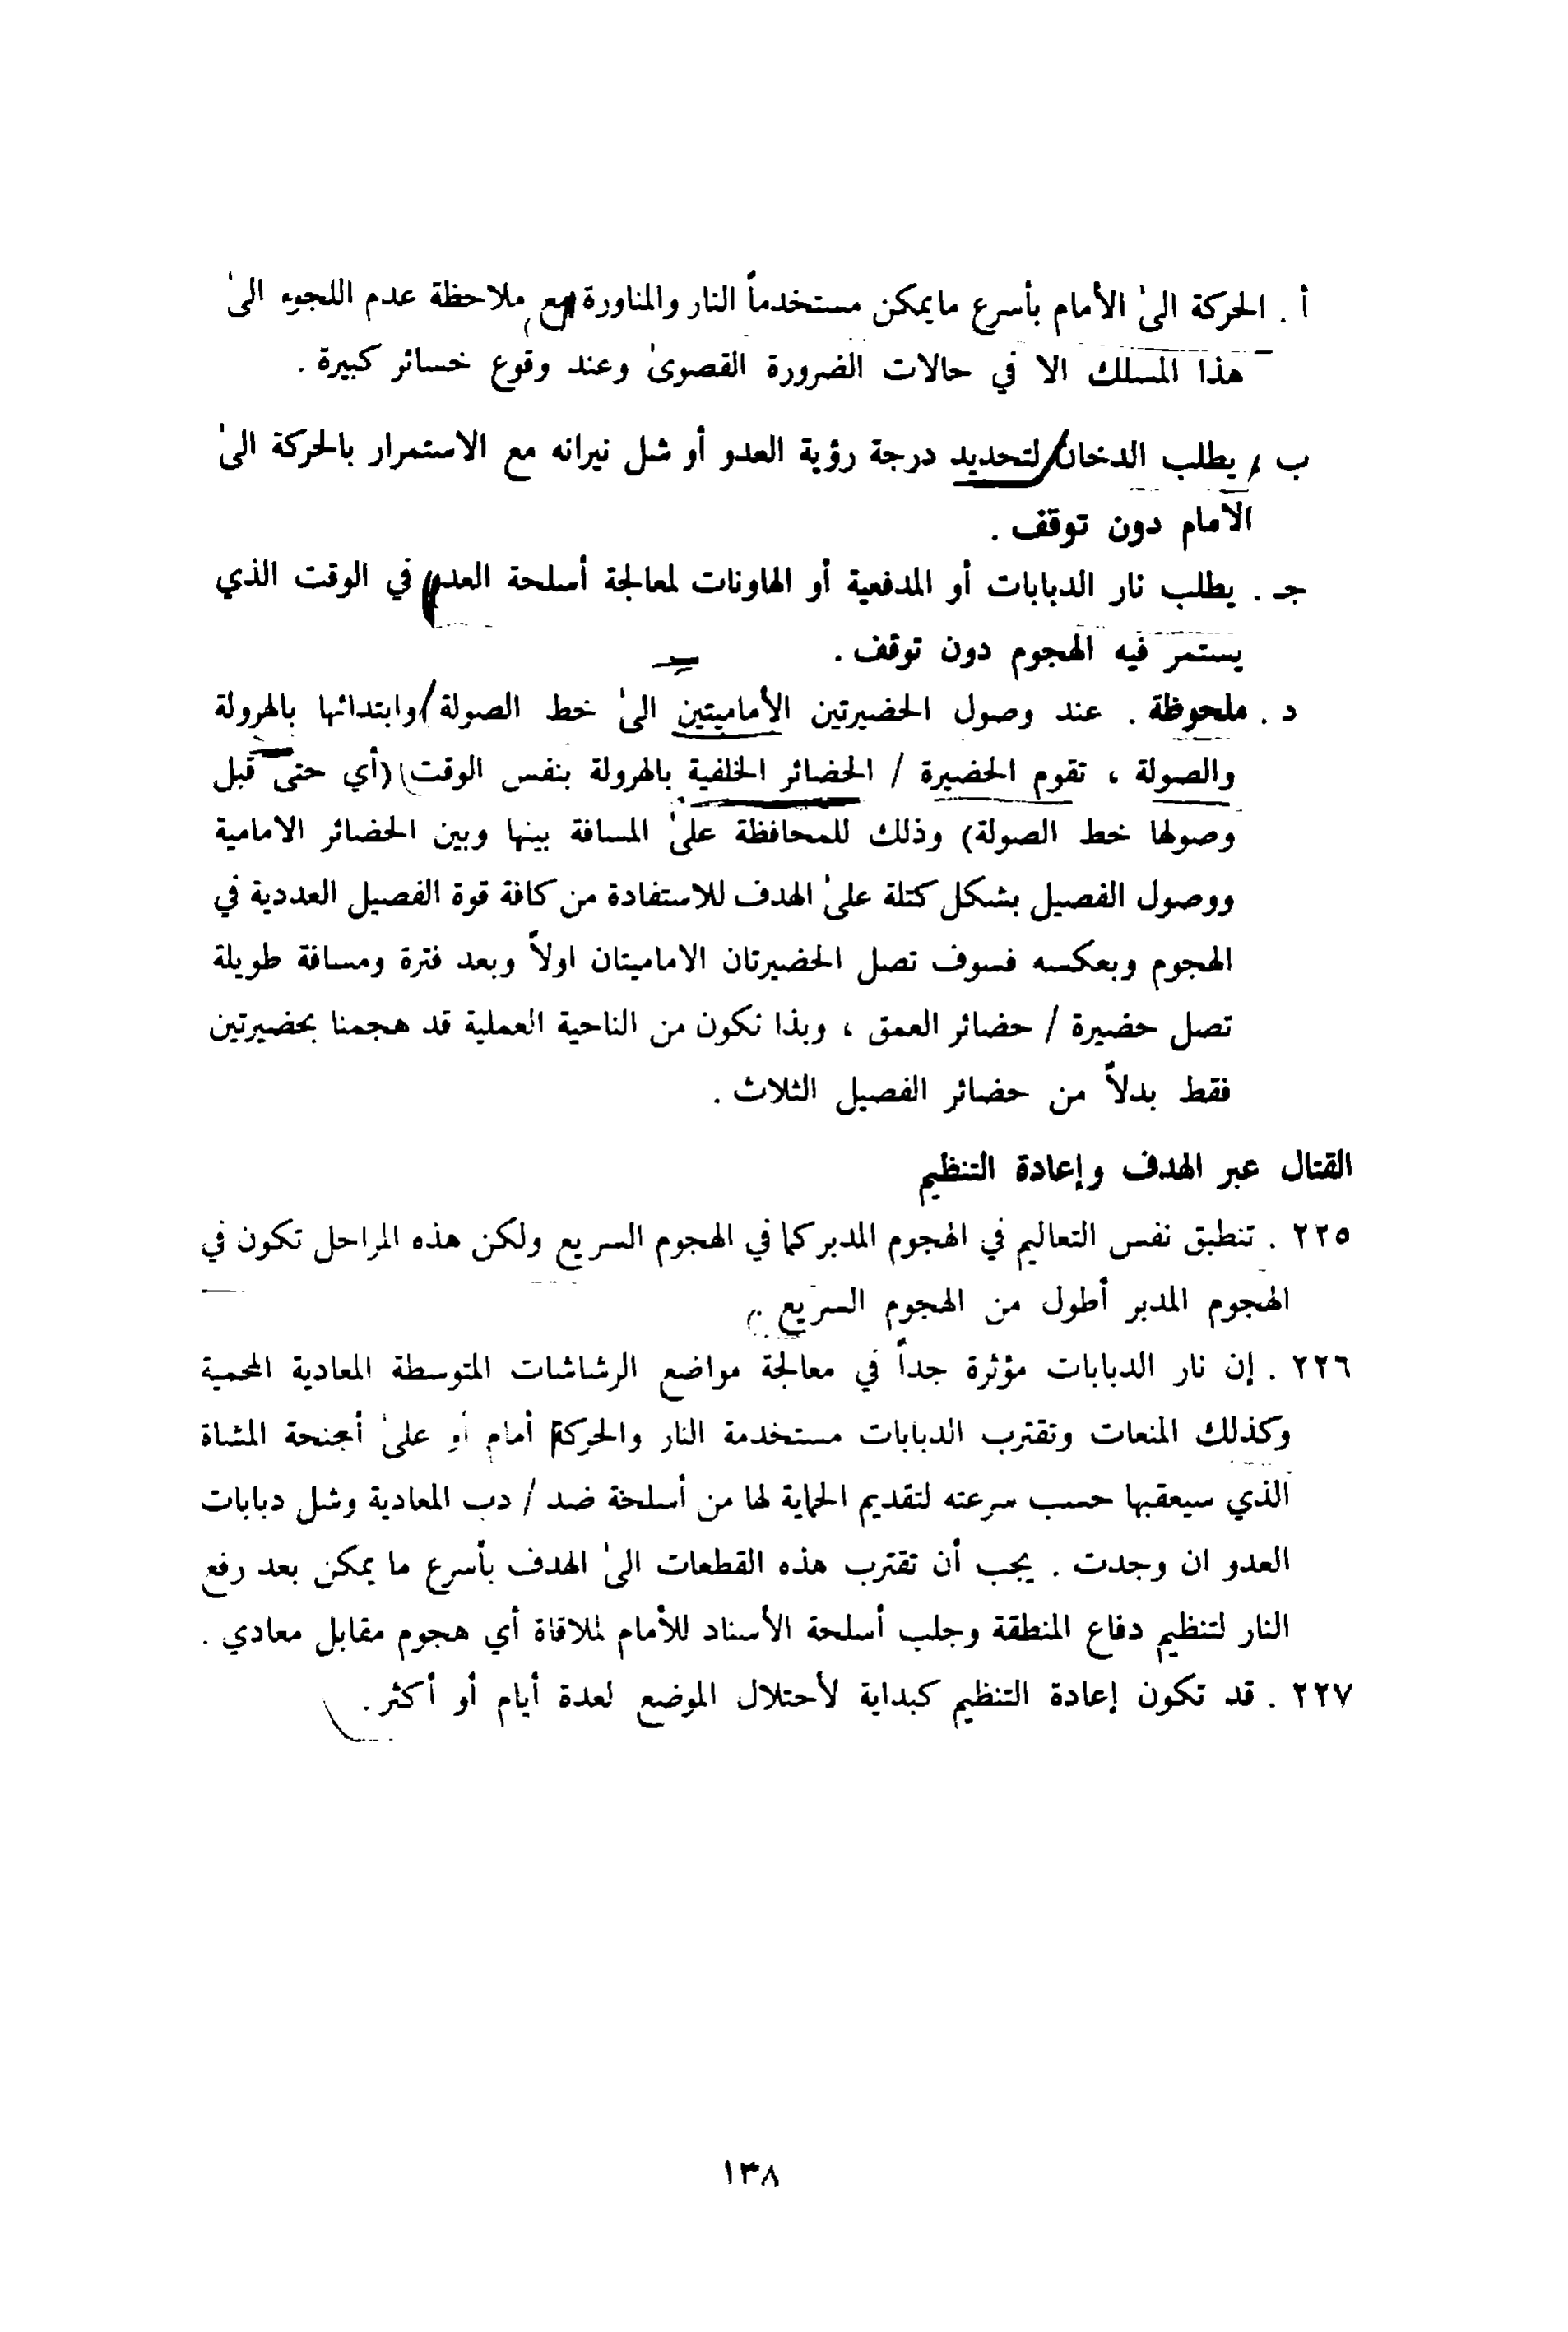 أ . الحركة الىٰ الأمام بأسرع مايمكن مستخدماً النار والمناورة مع ملاحظة عدم اللجوء الىٰ
هذا المسلك الا في حالات الضرورة القصوىٰ وعند وقوع خسائر كبيرة .
ب . يطلب الدخان لتحديد درجة رؤية العدو أو شل نيرانه مع الاستمرار بالحركة الىٰ
الامام دون توقف .
جـ . يطلب نار الدبابات أو المدفعية أو الهاونات لمعالجة أسلحة العدو في الوقت الذي
يستمر فيه الهجوم دون توقف .
د . ملحوظة . عند وصول الحضيرتين الأماميتين الىٰ خط الصولة وابتدائها بالهرولة
والصولة ، تقوم الحضيرة / الحضائر الخلفية بالهرولة بنفس الوقت (أي حتىٰ قبل
وصولها خط الصولة) وذلك للمحافظة علىٰ المسافة بينها وبين الحضائر الامامية
ووصول الفصيل بشكل كتلة علىٰ الهدف للاستفادة من كافة قوة الفصيل العددية في
الهجوم وبعكسه فسوف تصل الحضيرتان الاماميتان اولاً وبعد فترة ومسافة طويلة
تصل حضيرة / حضائر العمق ، وبذا نكون من الناحية العملية قد هجمنا بحضيرتين
فقط بدلاً من حضائر الفصيل الثلاث .
القتال عبر الهدف وإعادة التنظيم
٢٢٥ . تنطبق نفس التعاليم في الهجوم المدبر كما في الهجوم السريع ولكن هذه المراحل تكون في
الهجوم المدبر أطول من الهجوم السريع .
٢٢٦ . إن نار الدبابات مؤثرة جداً في معالجة مواضع الرشاشات المتوسطة المعادية المحمية
وكذلك المنعات وتقترب الدبابات مستخدمة النار والحركة أمام أو علىٰ أجنحة المشاة
الذي سيعقبها حسب سرعته لتقديم الحماية لها من أسلحة ضد / دب المعادية وشل دبابات
العدو ان وجدت . يجب أن تقترب هذه القطعات الىٰ الهدف بأسرع ما يمكن بعد رفع
النار لتنظيم دفاع المنطقة وجلب أسلحة الأسناد للأمام لملاقاة أي هجوم مقابل معادي .
٢٢٧ . قد تكون إعادة التنظيم كبداية لأحتلال الموضع لعدة أيام أو أكثر .
١٣٨